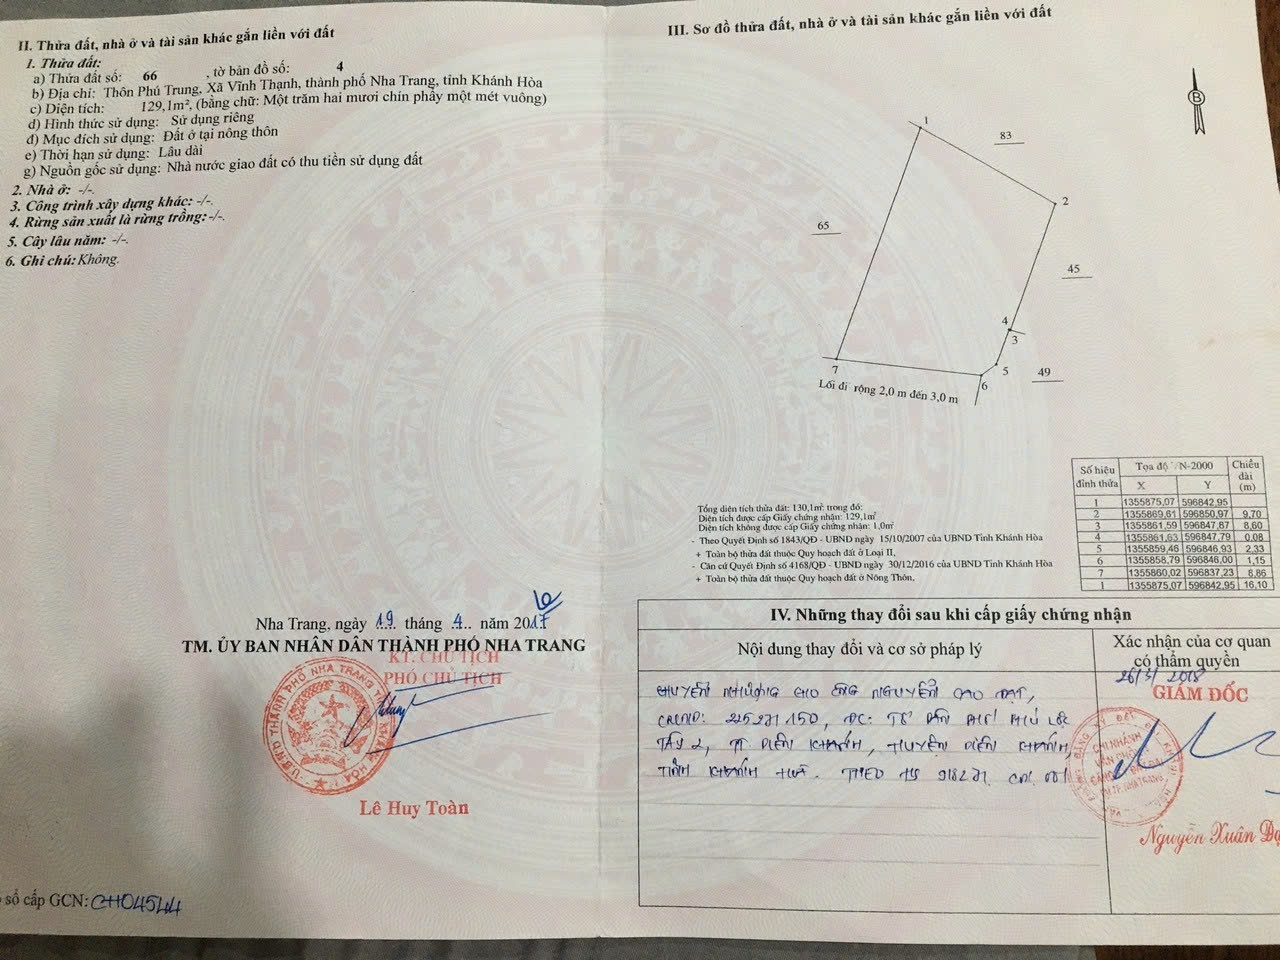 II. Thửa đất, nhà ở và tài sản khác gắn liền với đất
1. Thửa đất:
a) Thửa đất số: 66 , tờ bản đồ số: 4
b) Địa chỉ: Thôn Phú Trung, Xã Vĩnh Thạnh, thành phố Nha Trang, tỉnh Khánh Hòa
c) Diện tích: 129,1m², (bằng chữ: Một trăm hai mươi chín phẩy một mét vuông)
d) Hình thức sử dụng: Sử dụng riêng
đ) Mục đích sử dụng: Đất ở tại nông thôn
e) Thời hạn sử dụng: Lâu dài
g) Nguồn gốc sử dụng: Nhà nước giao đất có thu tiền sử dụng đất
2. Nhà ở: -/-.
3. Công trình xây dựng khác: -/-.
4. Rừng sản xuất là rừng trồng: -/-.
5. Cây lâu năm: -/-.
6. Ghi chú: Không.
Nha Trang, ngày 19 tháng 4 năm 2017
TM. ỦY BAN NHÂN DÂN THÀNH PHỐ NHA TRANG
KT. CHỦ TỊCH
PHÓ CHỦ TỊCH
Lê Huy Toàn
số cấp GCN: CH04544
III. Sơ đồ thửa đất, nhà ở và tài sản khác gắn liền với đất
B
1
83
2
65
45
4
3
7
5
49
6
Lối đi rộng 2,0 m đến 3,0 m
Số hiệu đỉnh thửa Tọa độ VN-2000 Chiều dài (m)
X Y
1 1355875,07 596842,95
2 1355869,61 596850,97 9,70
3 1355861,59 596847,87 8,60
4 1355861,63 596847,79 0,08
5 1355859,46 596846,93 2,33
6 1355858,79 596846,00 1,15
7 1355860,02 596837,23 8,86
1 1355875,07 596842,95 16,10
Tổng diện tích thửa đất: 130,1m² trong đó:
Diện tích được cấp Giấy chứng nhận: 129,1m²
Diện tích không được cấp Giấy chứng nhận: 1,0m²
- Theo Quyết Định số 1843/QĐ - UBND ngày 15/10/2007 của UBND Tỉnh Khánh Hòa
+ Toàn bộ thửa đất thuộc Quy hoạch đất ở Loại II,
- Căn cứ Quyết Định số 4168/QĐ - UBND ngày 30/12/2016 của UBND Tỉnh Khánh Hòa
+ Toàn bộ thửa đất thuộc Quy hoạch đất ở Nông Thôn,
IV. Những thay đổi sau khi cấp giấy chứng nhận
Nội dung thay đổi và cơ sở pháp lý
Xác nhận của cơ quan
có thẩm quyền
CHUYỂN NHƯỢNG CHO ÔNG NGUYỄN CAO ĐẠT,
CMND: 225271150, ĐC: TỔ DÂN PHỐ PHÚ LỘC
TÂY 2, TT DIÊN KHÁNH, HUYỆN DIÊN KHÁNH,
TỈNH KHÁNH HOÀ. THEO HS
26/3/2018
GIÁM ĐỐC
CHI NHÁNH
Nguyễn Xuân